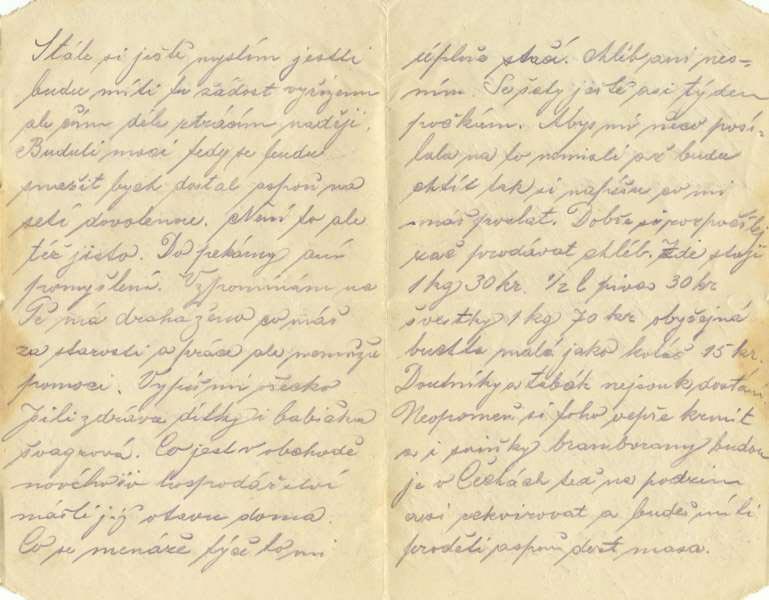 Stále si ještě myslím jestli
budu míti tu žádost vyřízenu
ale čím déle ztrácím naději.
Buduli moci tedy se budu
snažit bych dostal aspoň na
setí dovolenou. Není to ale
též jisto. Do pekárny ani
pomyšlení. Vzpomínám na
Tě má drahá ženo co máš
za starosti a práce ale nemůžu
pomoci. Vypiš mi všecko
Jsili zdráva dítky i babička
švagrová. Co jest v obchodě
nového v hospodářství
mášli již otavu doma.
Co se menáže týče to mi
úplně stačí. Chléb ani nes-
ním. Se šaty ještě asi týden
počkám. Abys mi něco posí-
lala na to nemysli až budu
chtít tak si napíšu co mi
máš poslat. Dobře si rozpočítej
zač prodávat chléb. Zde stojí
1 kg 30 kr. ½ l pivos 30 kr
švestky 1 kg 70 kr obyčejná
buchta malá jako koláč 15 kr.
Doutníky a tabák nejsou k dostání
Neopomeň si toho vepře krmit
a i svinky bramborami budou
je v Čechách teď na podzim
asi rekvírovat a budeš míti
proděti aspoň dost masa.